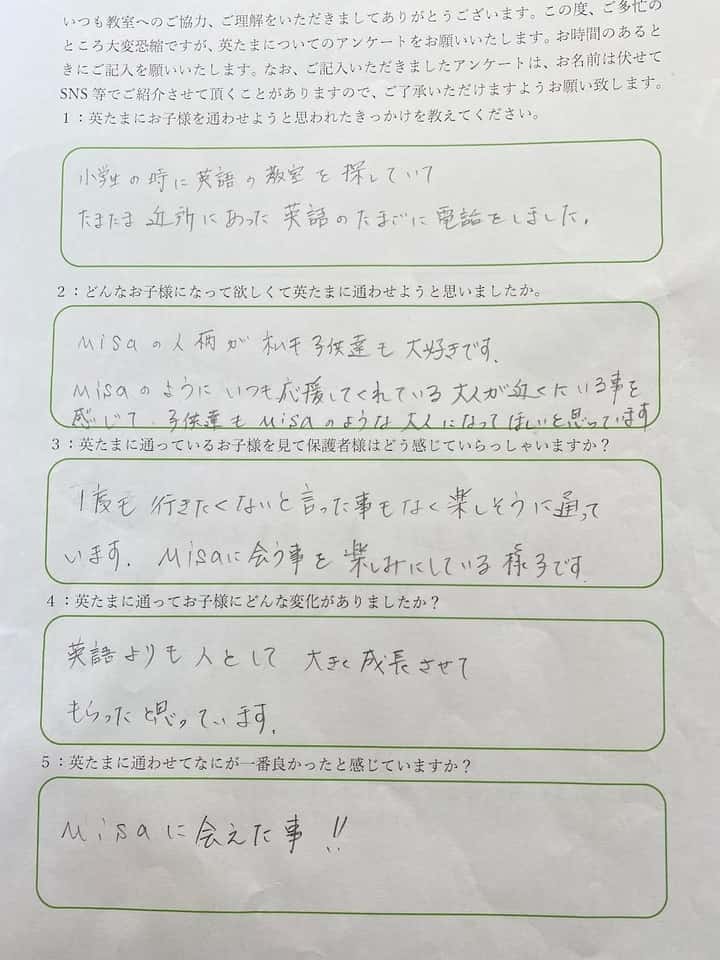 いつも教室へのご協力、ご理解をいただきましてありがとうございます。この度、ご多忙の
ところ大変恐縮ですが、英たまについてのアンケートをお願いいたします。お時間のあると
きにご記入を願いいたします。なお、ご記入いただきましたアンケートは、お名前は伏せて
SNS 等でご紹介させて頂くことがありますので、ご了承いただけますようお願い致します。
1：英たまにお子様を通わせようと思われたきっかけを教えてください。
小学生の時に英語の教室を探していて
たまたま近所にあった英語のたまごに電話をしました。
2：どんなお子様になって欲しくて英たまに通わせようと思いましたか。
Misaの人柄が私も子供達も大好きです。
Misaのようにいつも応援してくれている大人が近くにいる事を
感じて、子供達もMisaのような大人になってほしいと思っています
3：英たまに通っているお子様を見て保護者様はどう感じていらっしゃいますか？
1度も行きたくないと言った事もなく楽しそうに通って
います。Misaに会う事を楽しみにしている様子です。
4：英たまに通ってお子様にどんな変化がありましたか？
英語よりも人として大きく成長させて
もらったと思っています。
5：英たまに通わせてなにが一番良かったと感じていますか？
Misaに会えた事!!